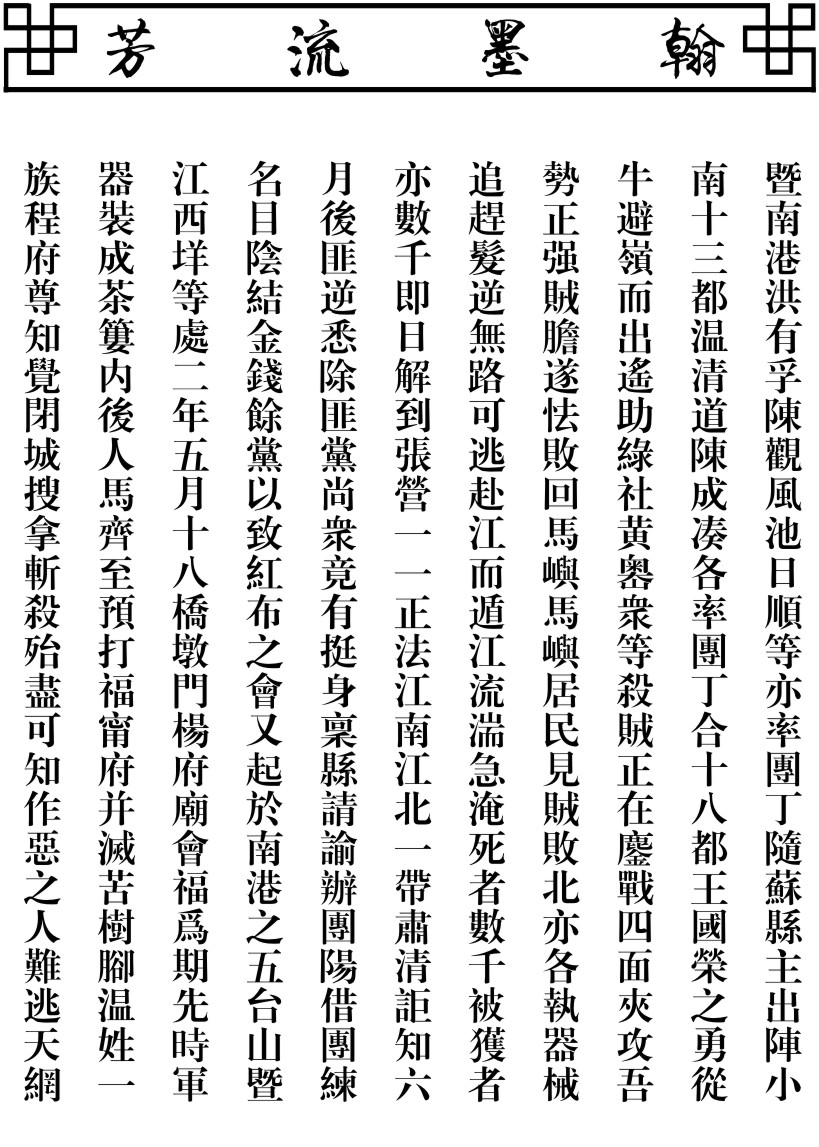 翰墨流芳
暨南港洪有孚陳觀風池日順等亦率團丁隨蘇縣主出陣小
南十三都温清道陳成凑各率團丁合十八都王國榮之勇從
牛避嶺而出遙助綠社黄嶴衆等殺賊正在鏖戰四面夾攻吾
勢正强賊膽遂怯敗回馬嶼馬嶼居民見賊敗北亦各執器械
追趕髮逆無路可逃赴江而遁江流湍急淹死者數千被獲者
亦數千即日解到張營一一正法江南江北一帶肅清詎知六
月後匪逆悉除匪黨尚衆竟有挺身稟縣請諭辦團陽借團練
名目陰結金錢餘黨以致紅布之會又起於南港之五台山暨
江西垟等處二年五月十八橋墩門楊府廟會福爲期先時軍
器裝成茶簍内後人馬齊至預打福甯府并滅苦樹腳温姓一
族程府尊知覺閉城搜拿斬殺殆盡可知作惡之人難逃天網